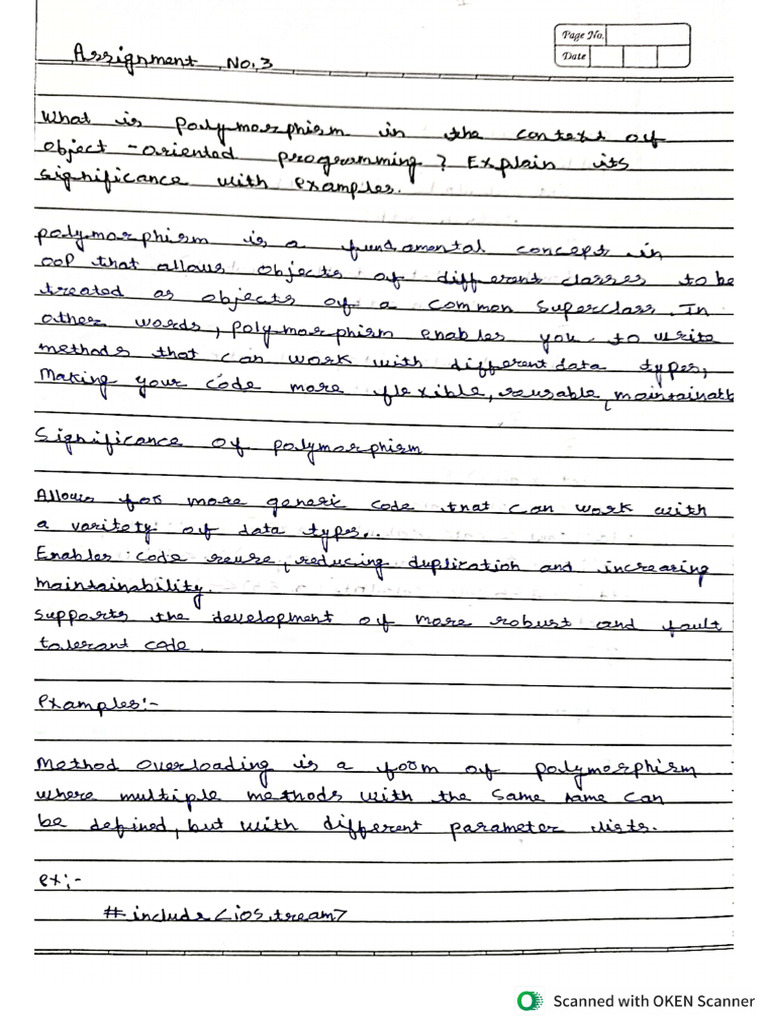 Page No.
Date
Assignment No.3
What is polymorphism in the context of
object-oriented programming? Explain its
significance with examples.
polymorphism is a fundamental concept in
OOP that allows objects of different classes to be
treated as objects of a common superclass. In
other words, polymorphism enables you to write
methods that can work with different data types,
Making your code more flexible, reusable, maintainabl
Significance of polymorphism
Allows for more generic code that can work with
a varitety of data types..
Enables code reuse, reducing duplication and increasing
maintainability.
supports the development of more robust and fault
tolerant code.
Examples:-
Method overloading is a form of polymorphism
where multiple methods with the same name can
be defined, but with different parameter lists.
ex:-
#include <iostream>
Scanned with OKEN Scanner